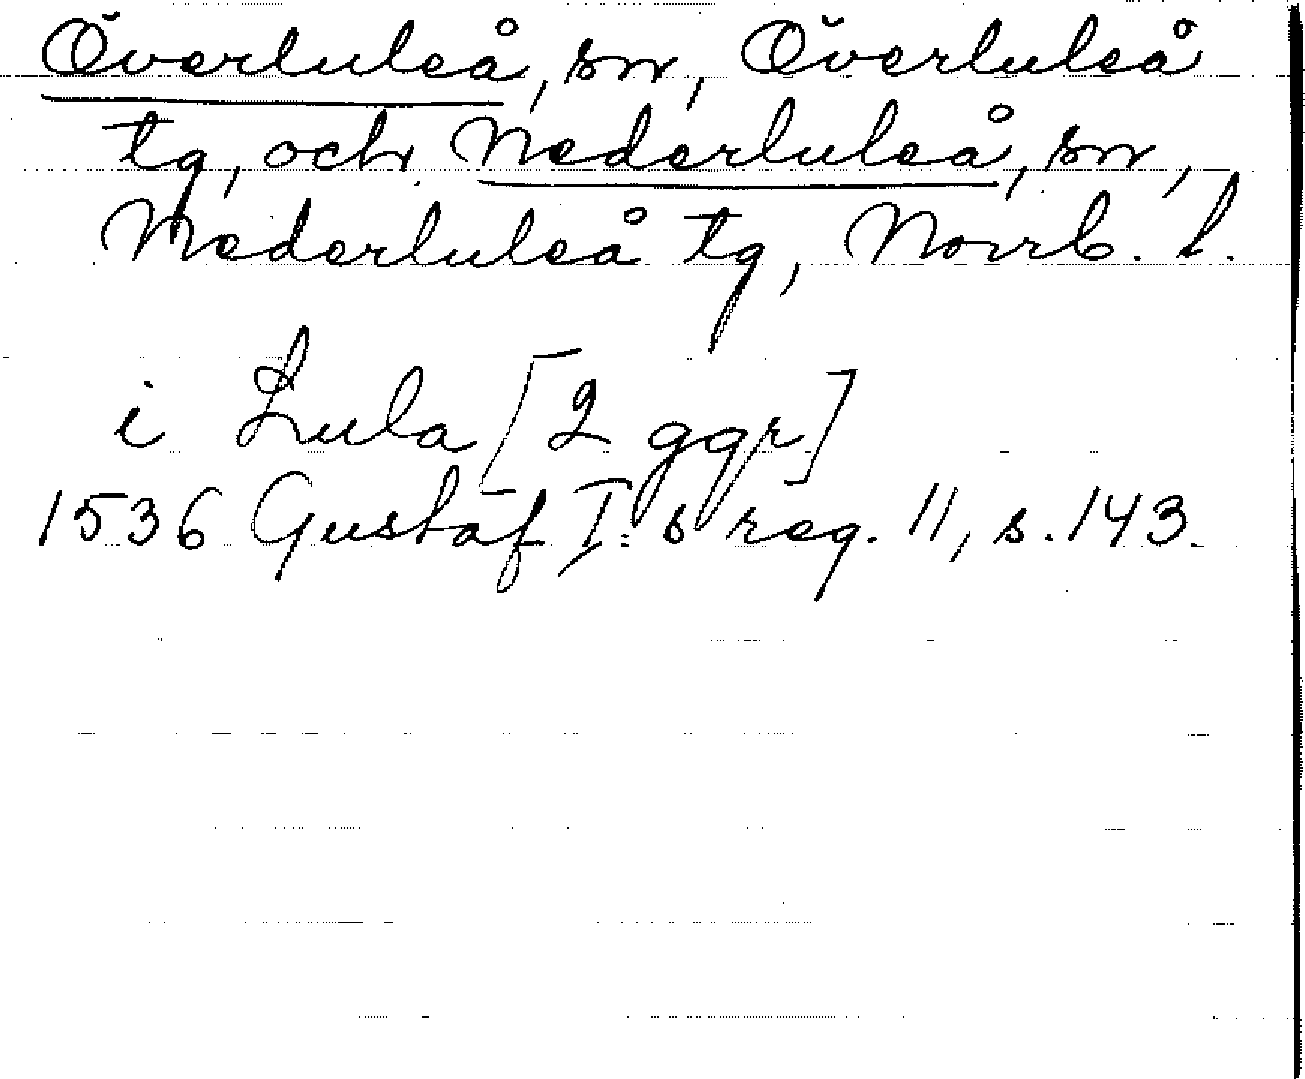 Överluleå, sn, Överluleå
tg, och Nederluleå, sn,
Nederluleå tg, Norrb. l.
i Lula [2 ggr]
1536 Gustaf I:s reg. 11, s. 143.